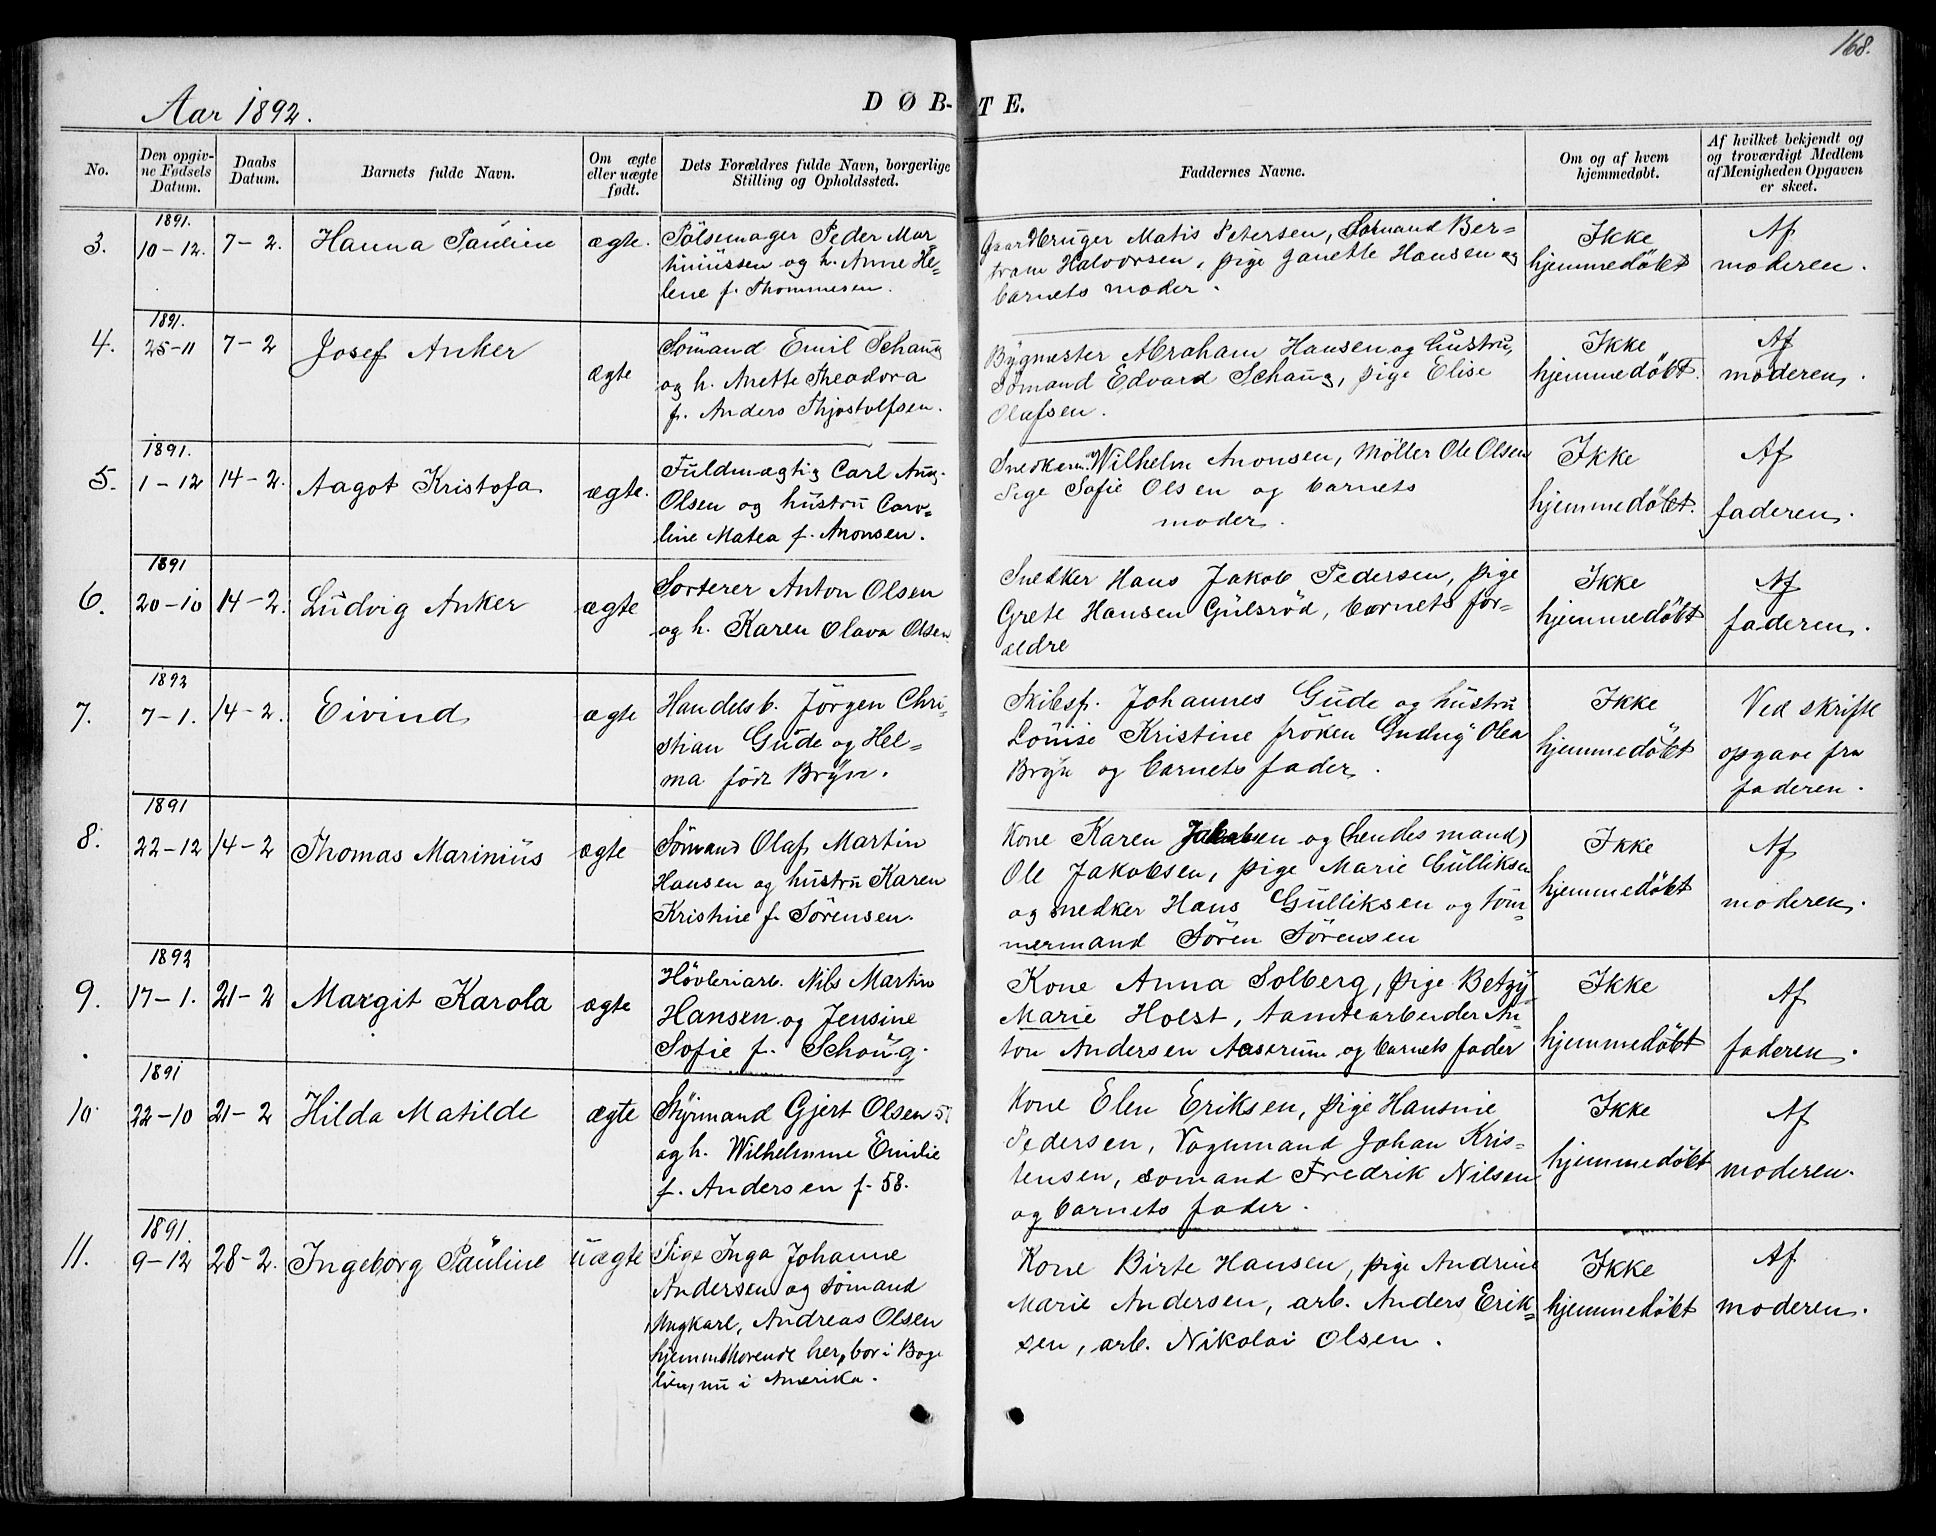 168.
Aar 1892.
DØB-TE.
No.
Den opgiv-
ne Fødsels
Datum.
Daabs
Datum.
Barnets fulde Navn.
Om ægte
eller uægte
født.
Dets Forældres fulde Navn, borgerlige
Stilling og Opholdssted.
Faddernes Navne.
Om og af hvem
hjemmedøbt.
Af hvilket bekjendt og
og troværdigt Medlem
af Menigheden Opgaven
er skeet.
3.
1891.
10-12.
7-2.
Hanna Pauline
ægte.
Pølsemager Peder Mar-
tiniussen og h. Anne He-
lene f. Thommesen.
Gaardbruger Matis Petersen, Sømand Ber-
tram Halvorsen, pige Janette Hansen og
barnets moder.
Ikke
hjemmedøbt
Af
moderen.
4.
1891.
25-11
7-2
Josef Anker
ægte
Sømand Emil Schaug
og h. Anette Theodora
f. Anders Thjostolfsen.
Bygmester Abraham Hansen og hustru,
Sømand Edvard Schaug, pige Elise
Olafsen.
Ikke
hjemmedøbt.
Af
moderen.
5.
1891.
1-12
14-2.
Aagot Kristofa
ægte.
Fuldmægtig Carl Aug.
Olsen og hustru Caro-
line Matea f. Anonsen.
Snedkerm. Wilhelm Anonsen, Møller Ole Olsen
Pige Sofie Olsen og barnets
moder.
Ikke
hjemmedøbt.
Af
faderen.
6.
1891
20-10
14-2.
Ludvig Anker
ægte
Sorterer Anton Olsen
og h. Karen Olava Olsen
Snedker Hans Jakob Pedersen, pige
Grete Hansen Gulsrød, barnets for-
ældre
Ikke
hjemmedøbt
Af
faderen.
7.
1892
7-1.
14-2.
Eivind
ægte
Handelsb. Jørgen Chri-
stian Gude og Hel-
ma født Bryn.
Skibsf. Johannes Gude og hustru
Louise Kristine frøken Gudny Olea
Bryn og barnets fader.
Ikke
hjemmedøbt
Ved skriftl
opgave fra
faderen.
8.
1891
22-12
14-2
Thomas Marinius
ægte
Sømand Olaf Martin
Hansen og hustru Karen
Kristine f. Sørensen.
Kone Karen Jakobsen og (hendes mand)
Ole Jakobsen, pige Marie Gulliksen
og snedker Hans Gulliksen og tøm-
mermand Søren Sørensen
Ikke
hjemmedøbt
Af
moderen.
9.
1892
17-1.
21-2
Margit Karola
ægte
Høvleriarb. Nils Martin
Hansen og Jensine
Sofie f. Schoug.
Kone Anna Solberg, pige Betzy
Marie Holst, Tomtearbeider An-
ton Andersen Aaserum og barnets fader
Ikke
hjemmedøbt
Af
faderen.
10
1891
22-10
21-2
Hilda Matilde
ægte
Styrmand Gjert Olsen
og h. Wilhelmine Emilie
f. Andersen f. 58.
Kone Elen Eriksen, pige Hansine
Pedersen, Vognmand Johan Kris-
tensen, sømand Fredrik Nilsen
og barnets fader.
Ikke
hjemmedøbt
Af
moderen.
11.
1891.
9-12
28-2.
Ingeborg Pauline
uægte
Pige Inga Johanne
Andersen og sømand
Ungkarl, Andreas Olsen
hjemmehørende her, bor i Boge
lien, nu i Amerika.
Kone Birte Hansen, pige Andrine
Marie Andersen, arb. Anders Erik-
sen, arb. Nikolai Olsen.
Ikke
hjemmedøbt
Af
moderen.